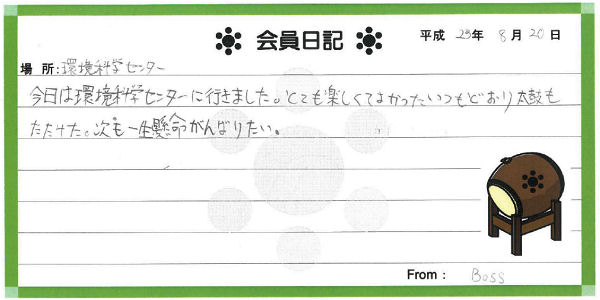 会員日記
平成 23年 8月 20日
場所:環境科学センター
今日は環境科学センターに行きました。とても楽しくてよかったいつもどおり太鼓も
たたけた。次も一生懸命がんばりたい。
From: Boss